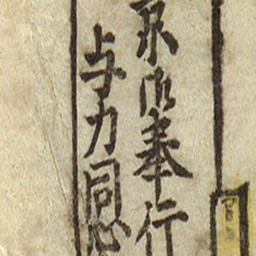 京御奉行
与力同心